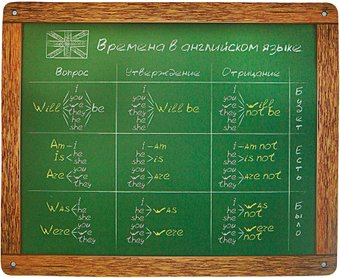 Времена в английском языке
Вопрос Утверждение Отрицание
I I I
you you you
we we we will
Will they be they Will be they not be
he he he
she she she
Будет
Am I I am I am not
he he he
Is she she is she is not
you you you
Are we we are we are not
they they they
Есть
I I I
Was he he was he was not
she she she
you you you
Were we we were we were not
they they they
Было